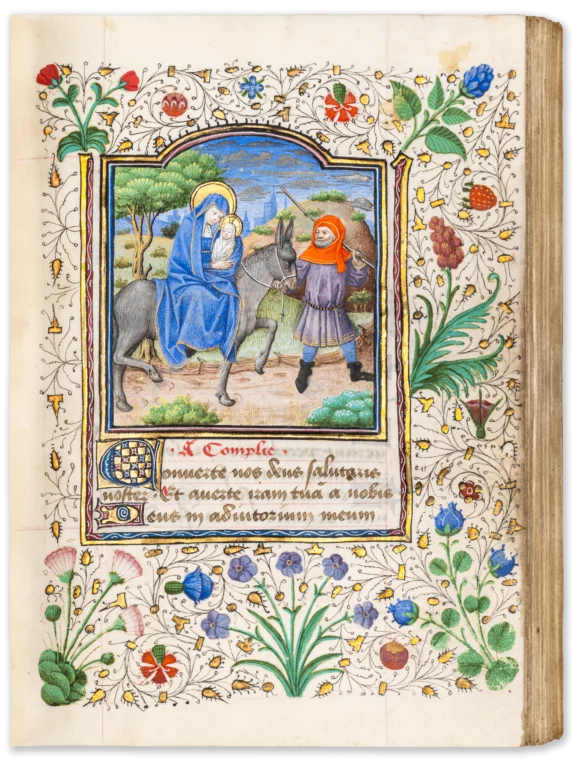 · A Complie ·
Converte nos deus salutaris
noster · Et averte iram tuã a nobis
Deus in adiutorium meum